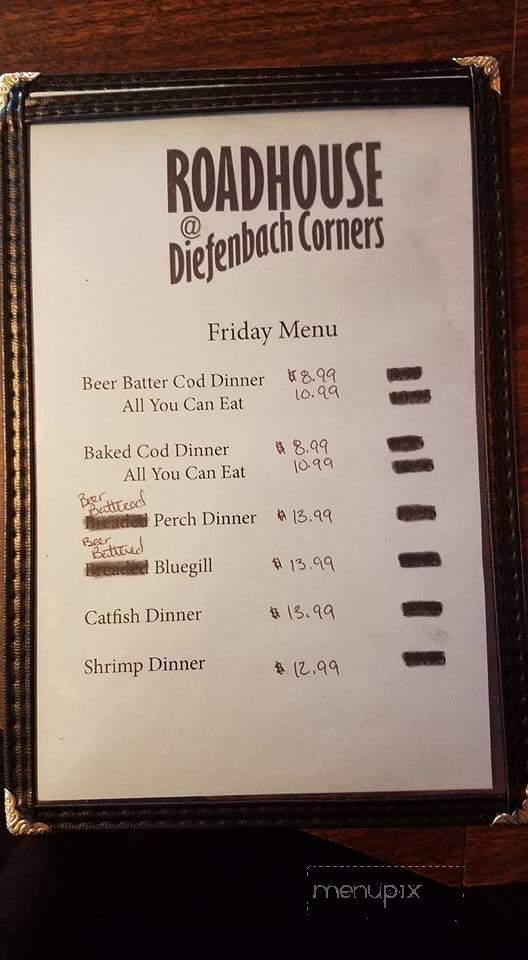 ROADHOUSE
@
Diefenbach Corners
Friday Menu
Beer Batter Cod Dinner $8.99
All You Can Eat 10.99
Baked Cod Dinner $8.99
All You Can Eat 10.99
Beer Battered
Breaded Perch Dinner $13.99
Beer Battered
Breaded Bluegill $13.99
Catfish Dinner $13.99
Shrimp Dinner $12.99
menupix